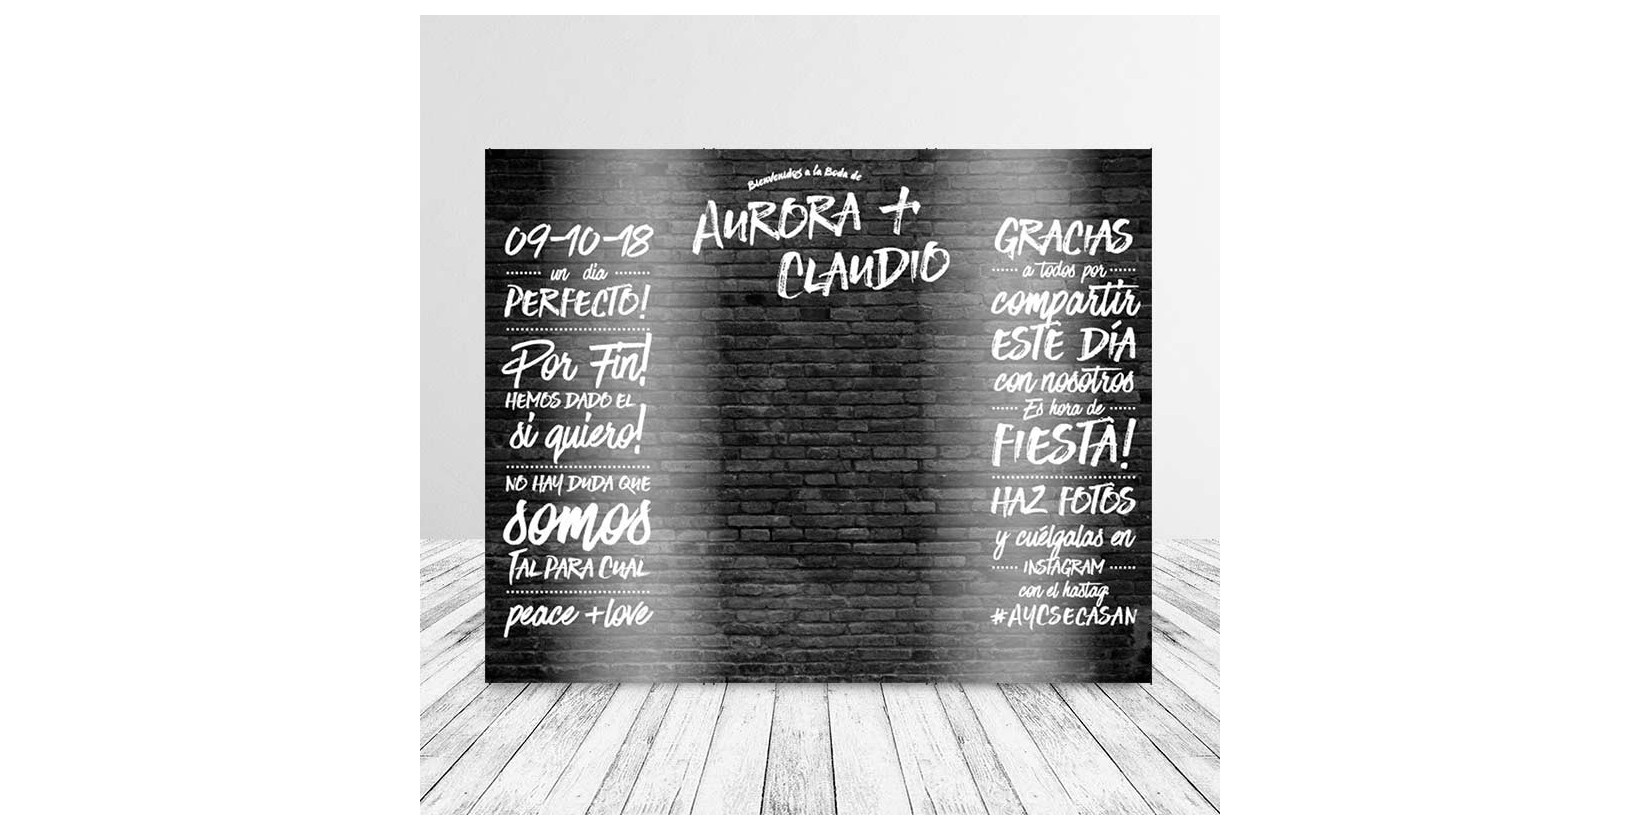 Bienvenidos a la Boda de
AURORA +
CLAUDIO
09-10-18
un dia
PERFECTO!
Por Fin!
HEMOS DADO EL
si quiero!
NO HAY DUDA QUE
somos
TAL PARA CUAL
peace + love
GRACIAS
a todos por
compartir
ESTE DÍA
con nosotros
Es hora de
FIESTA!
HAZ FOTOS
y cuélgalas en
INSTAGRAM
con el hastag:
#AYCSECASAN